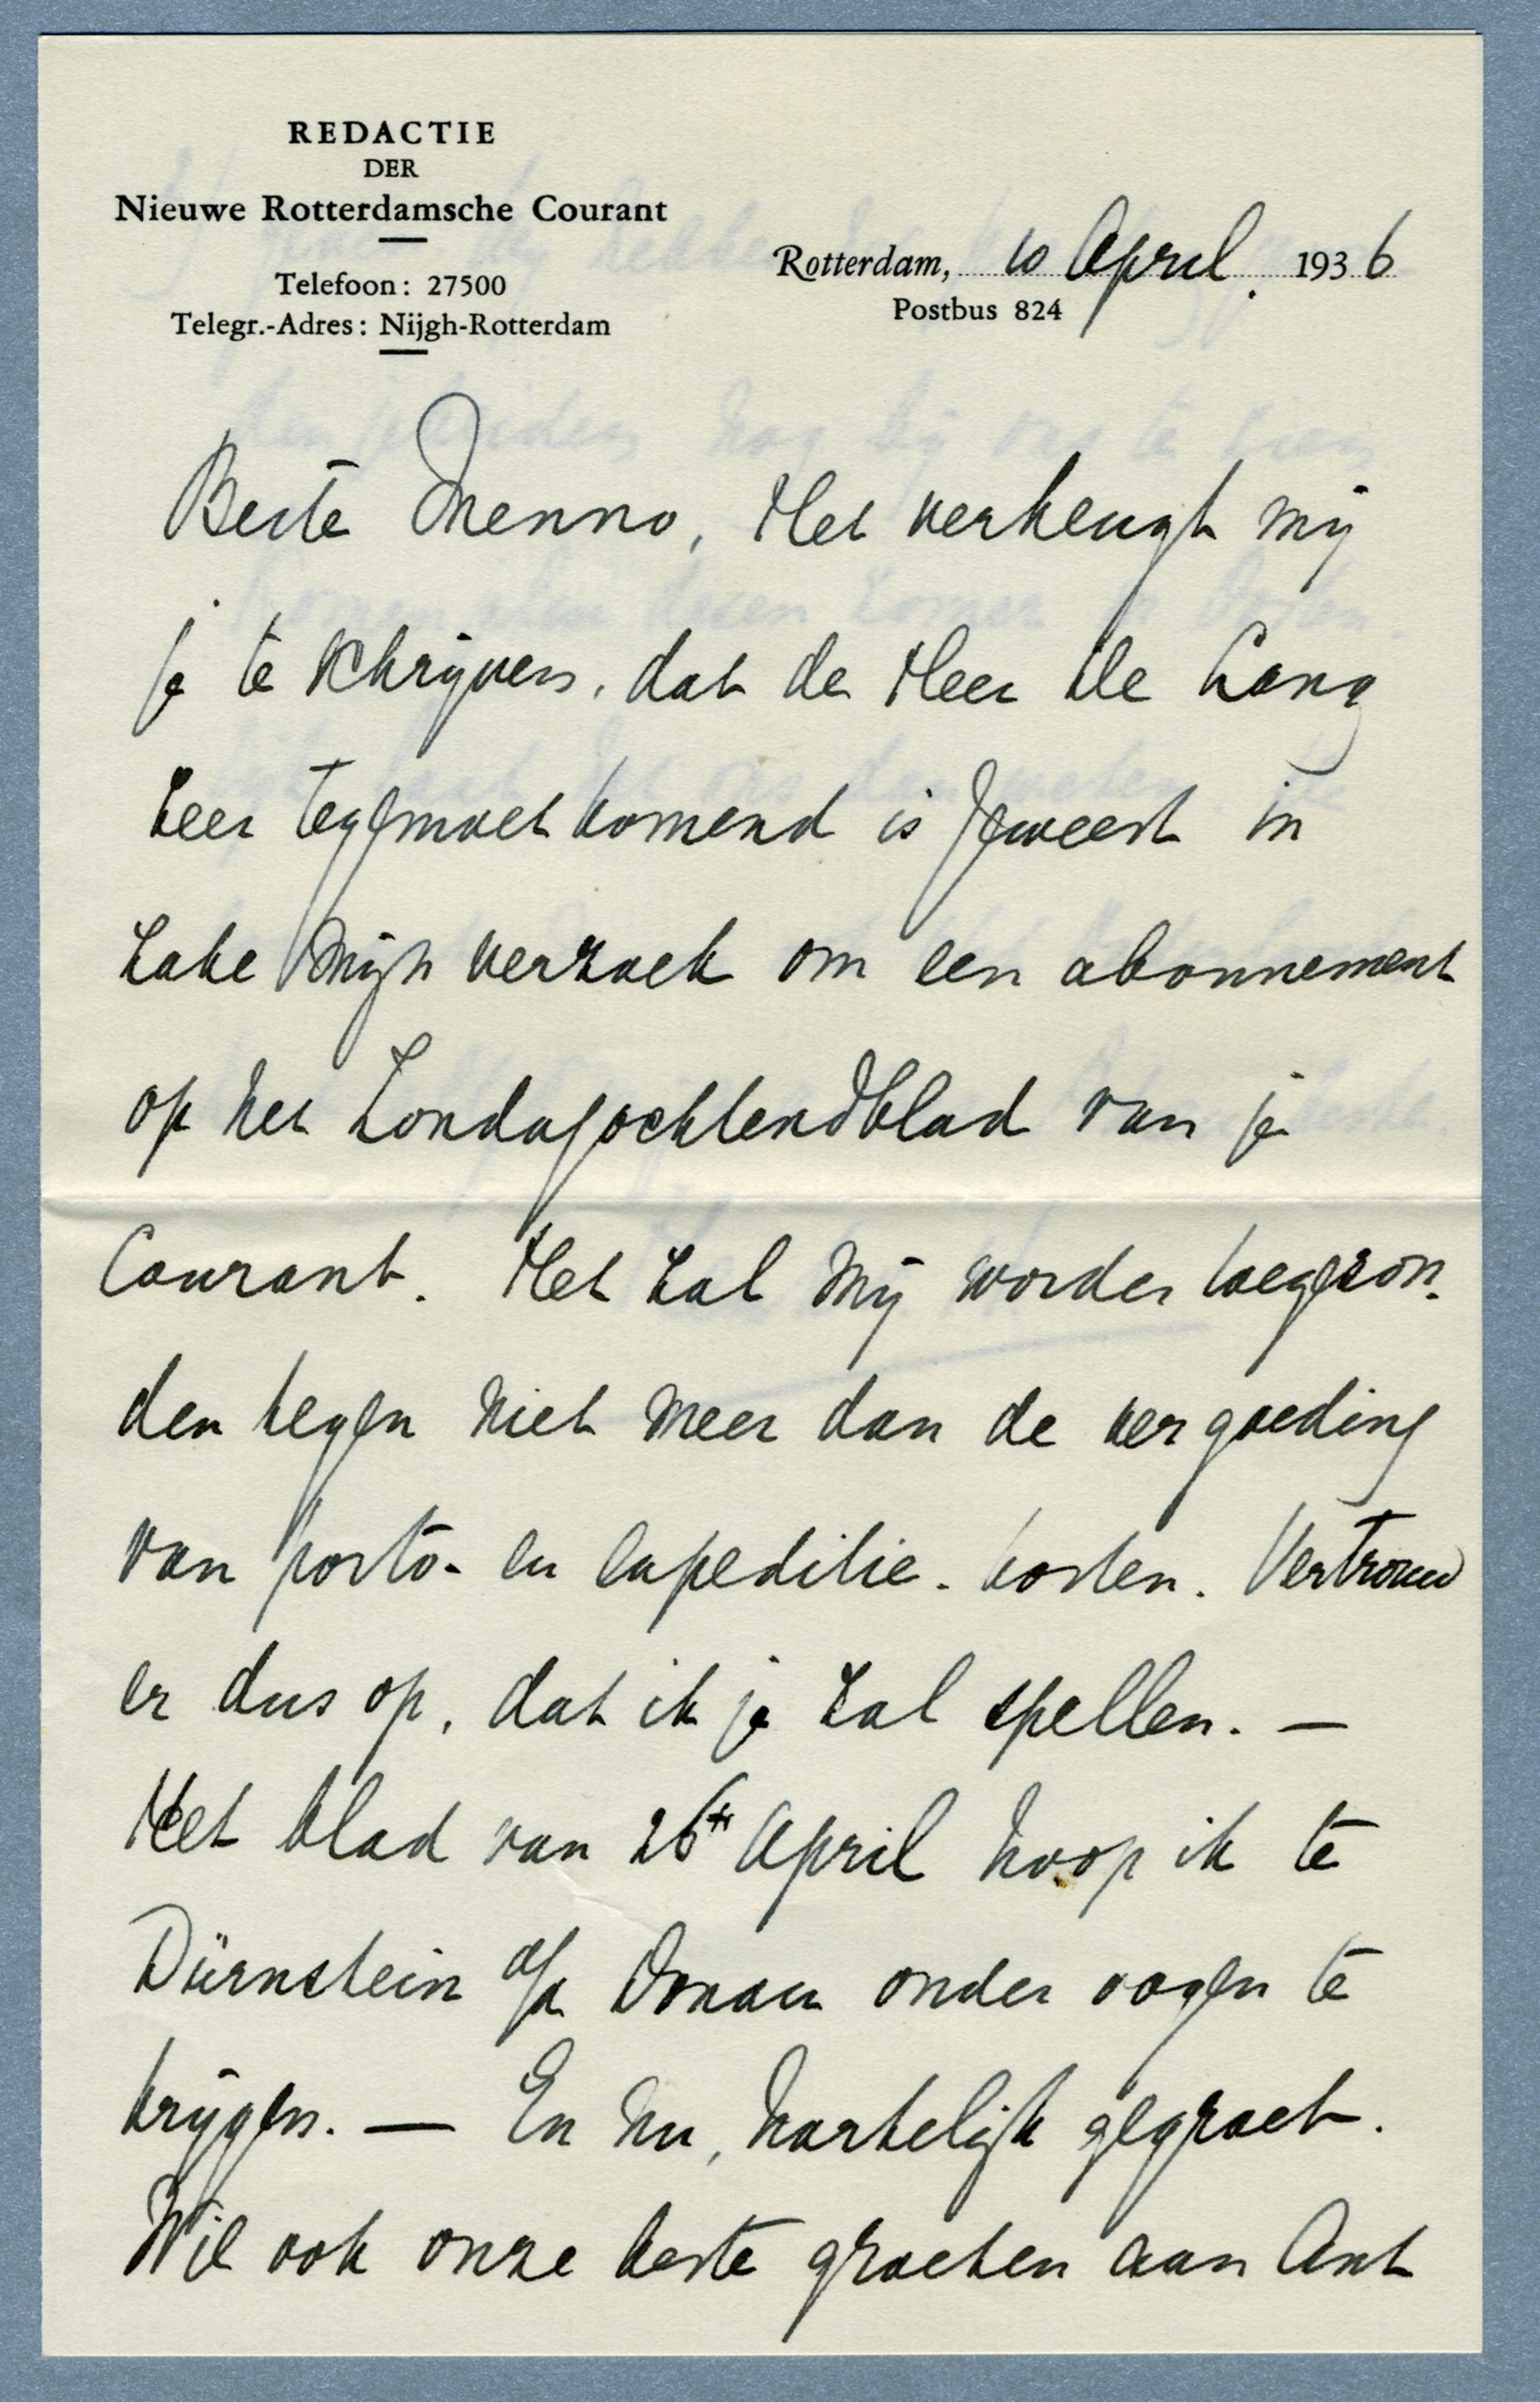 REDACTIE
DER
Nieuwe Rotterdamsche Courant
Telefoon: 27500
Telegr.-Adres: Nijgh-Rotterdam
Rotterdam, 10 April. 1936
Postbus 824
Beste Menno, Het verheugt mij
je te schrijven, dat de Heer De Lang
zeer tegemoetkomend is geweest in
zake mijn verzoek om een abonnement
op het Zondagochtendblad van je
Courant. Het zal mij worden toegezon-
den tegen niet meer dan de vergoeding
van porto- en expeditie-kosten. Vertrouw
er dus op, dat ik je zal spellen. —
Het blad van 26st April hoop ik te
Dürnstein a/d Donau onder oogen te
krijgen. — En nu, hartelijk gegroet.
Wil ook onze beste groeten aan Ant